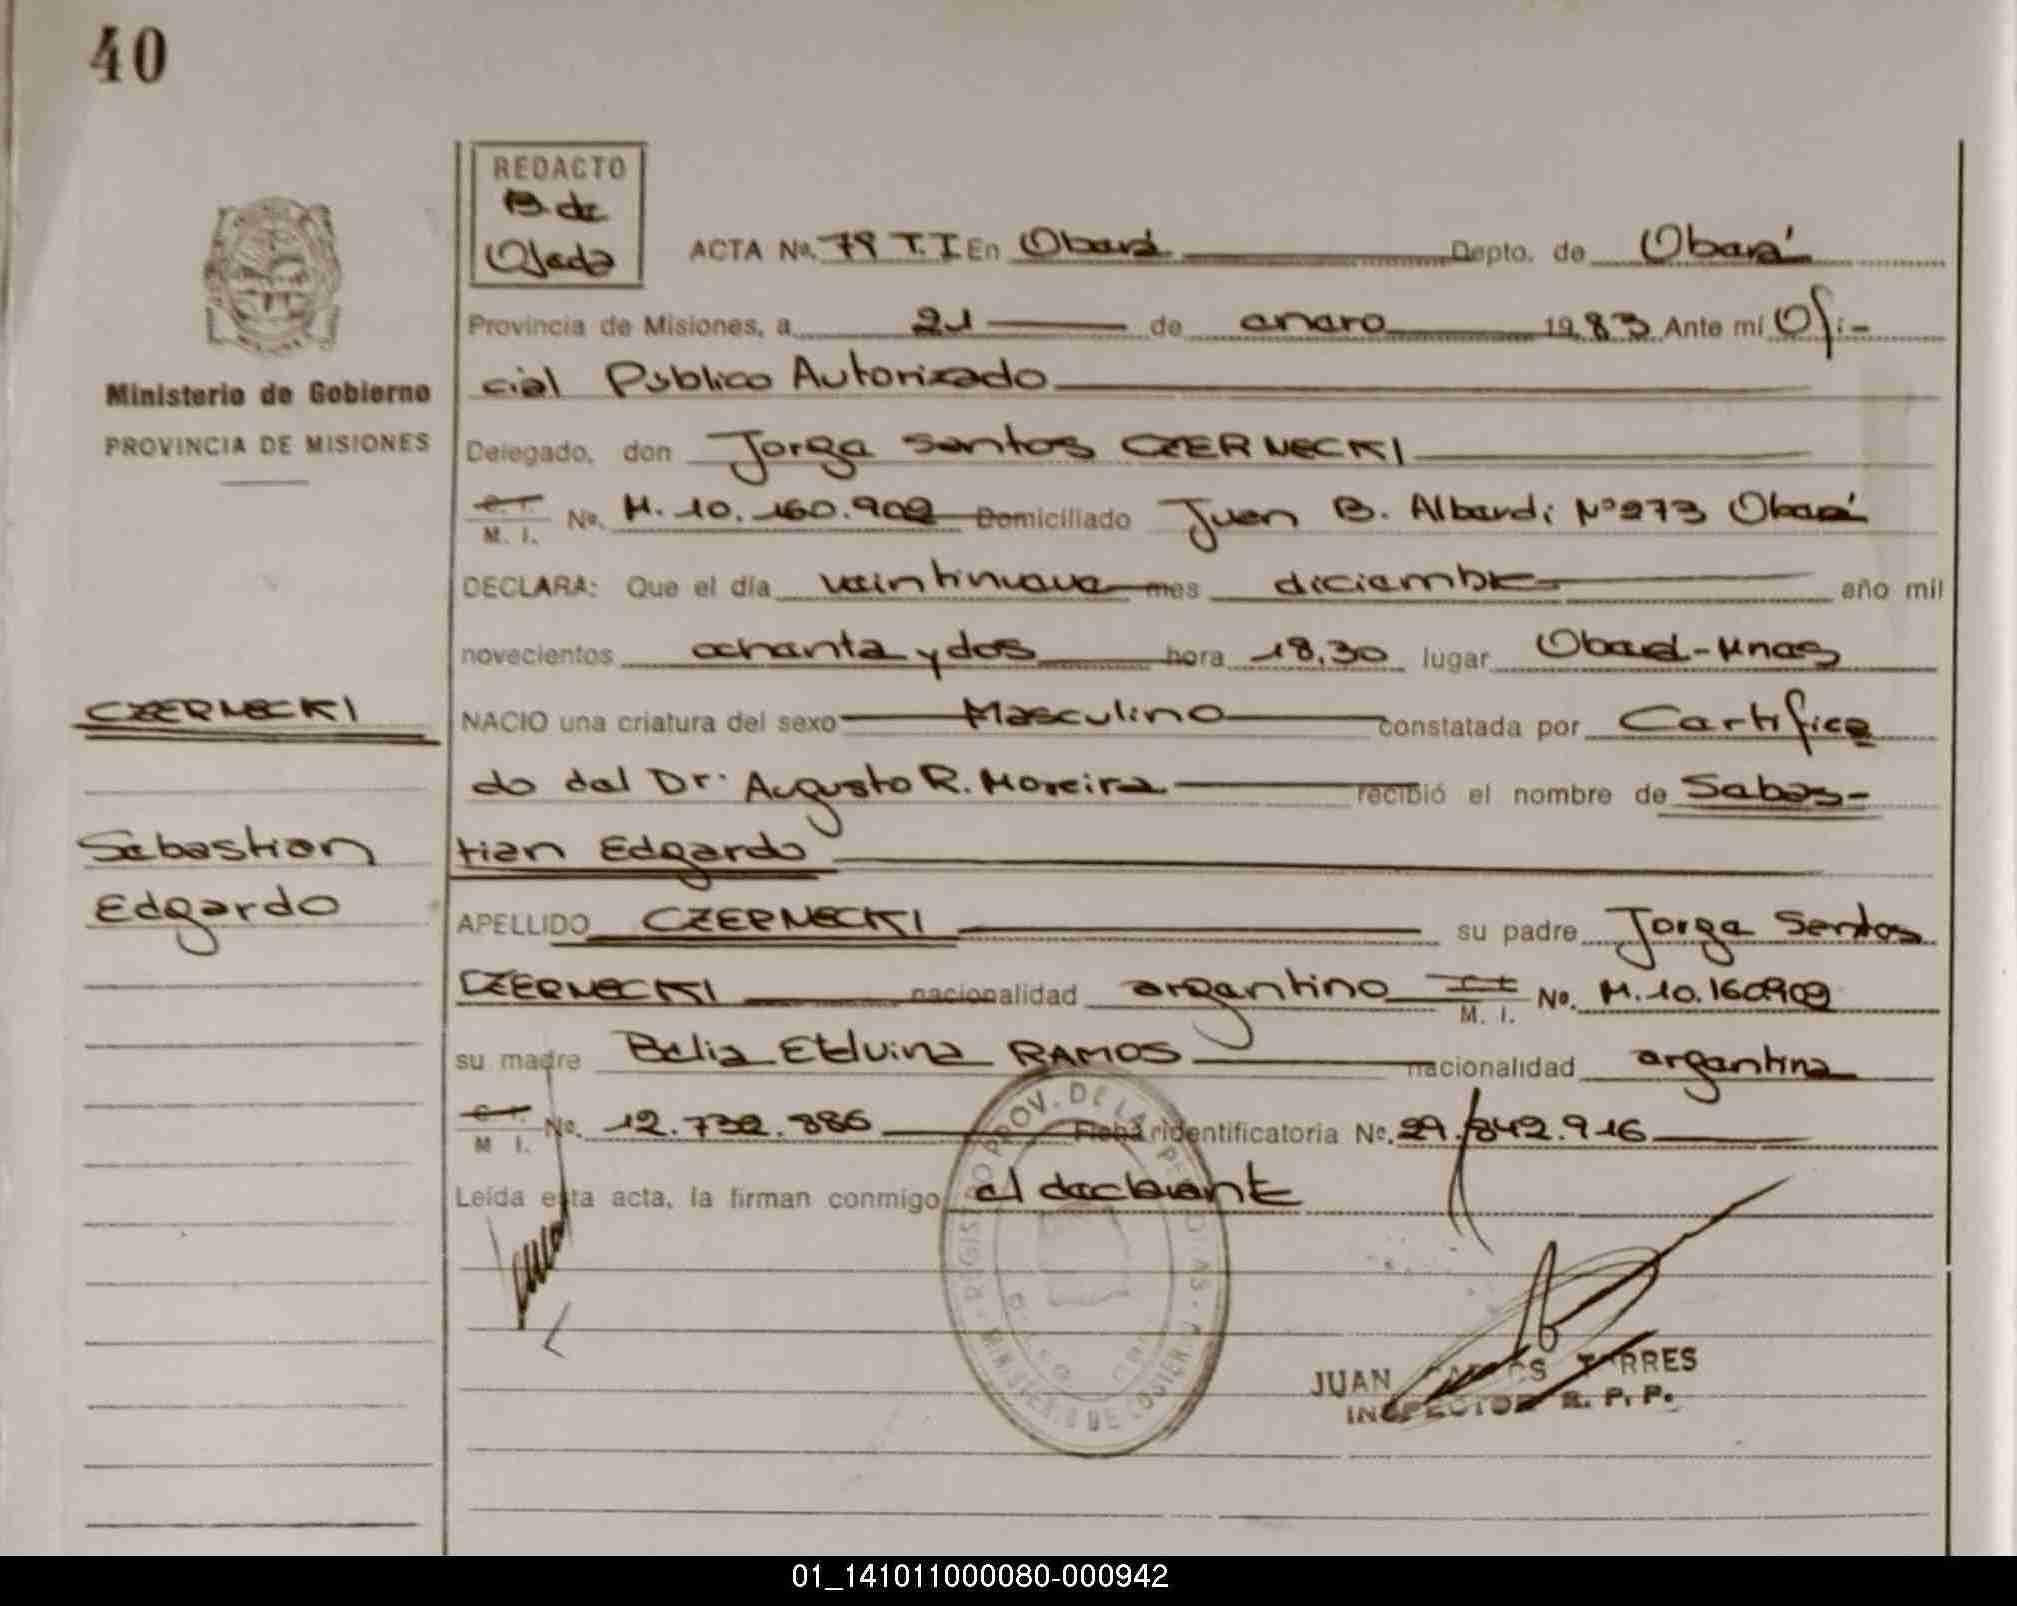 40
REDACTO
B. de
Ojeda
ACTA No. 79 T.I En Oberá Depto. de Oberá
Provincia de Misiones, a 21 de enero 1983 Ante mí Ofi-
cial Público Autorizado
Ministerio de Gobierno
PROVINCIA DE MISIONES
Delegado, don Jorge Santos CZERNECKI
C. I. M. I. No. M. 10.160.902 Domiciliado Juan B. Alberdi Nº 273 Oberá
DECLARA: Que el día veintinueve mes diciembre año mil
novecientos ochenta y dos hora 18,30 lugar Oberá-Mnes
CZERNECKI
NACIO una criatura del sexo Masculino constatada por Certifica
do del Dr. Augusto R. Moreira recibió el nombre de Sebas-
Sebastian
tian Edgardo
Edgardo
APELLIDO CZERNECKI su padre Jorge Santos
CZERNECKI nacionalidad argentino C. I. M. I. No. M. 10.160.902
su madre Belia Etelvina RAMOS nacionalidad argentina
C. I. M. I. No. 12.732.886 Ficha identificatoria No. 29.842.916
Leída esta acta, la firman conmigo el declarante
REGISTRO PROV. DE LAS PERSONAS
MINISTERIO DE GOBIERNO
JUAN CARLOS TORRES
INSPECTOR R. P. P.
01_141011000080-000942